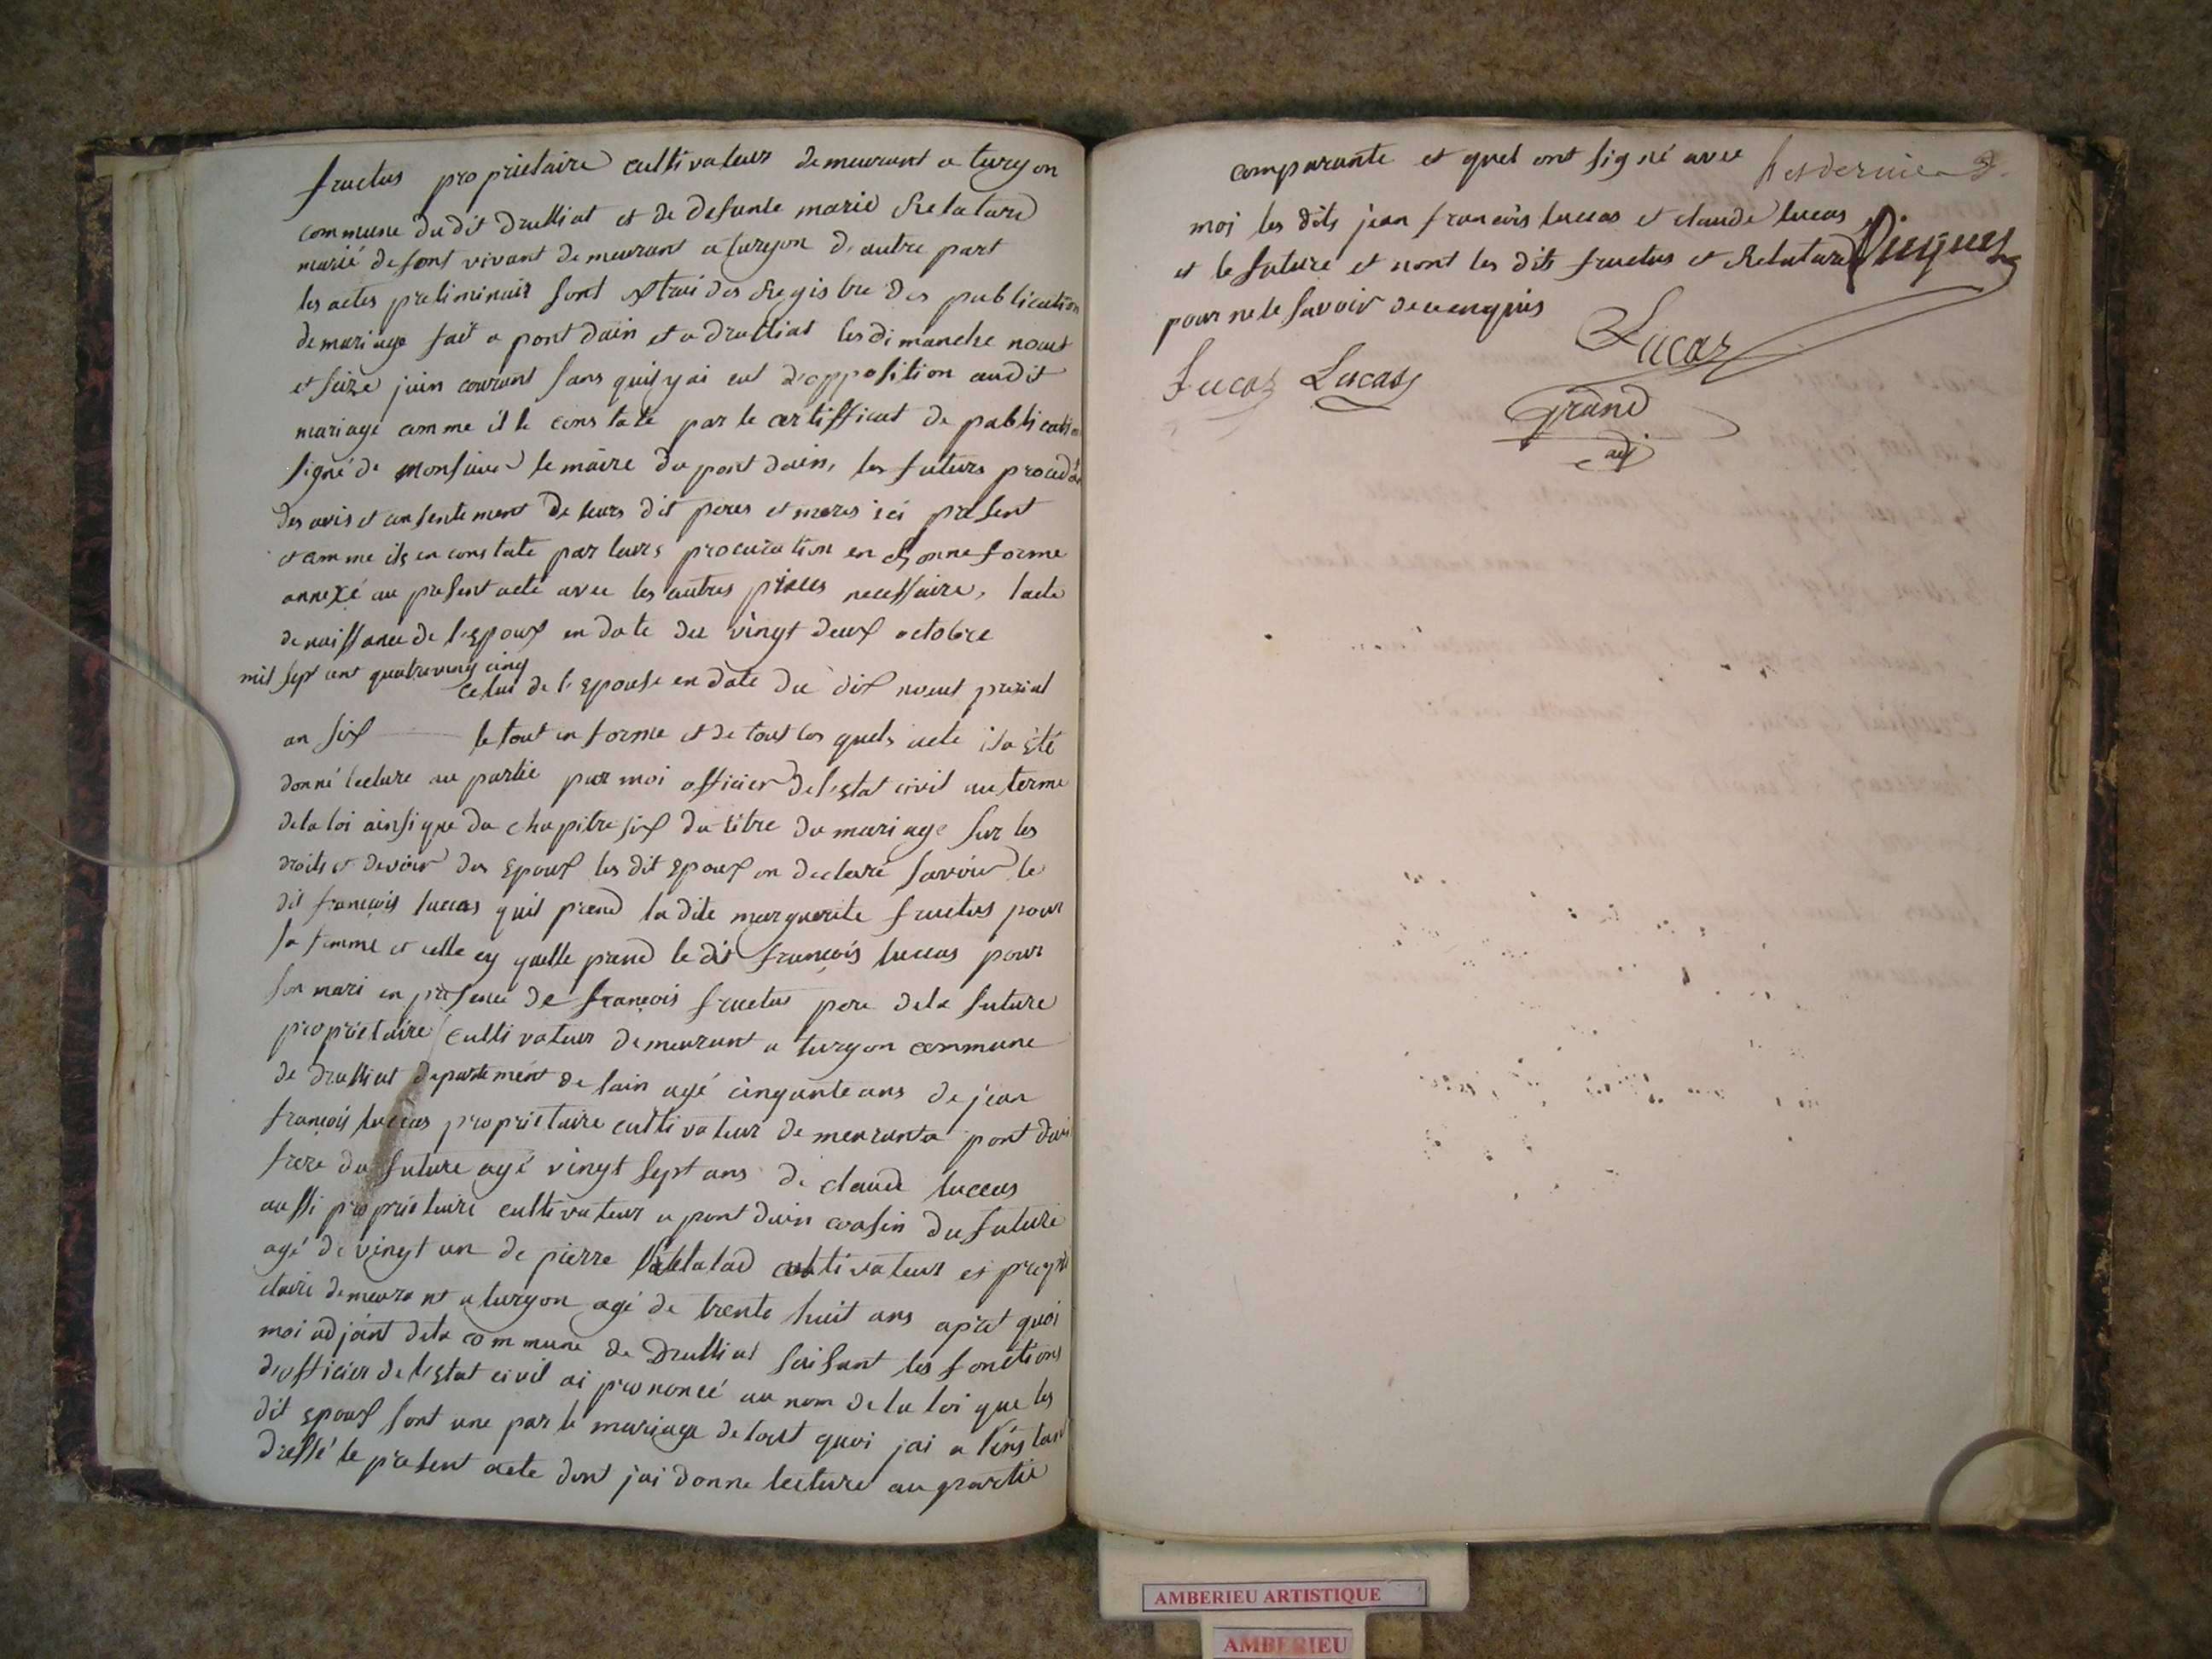 fructus proprietaire cultivateur demeurant a turgon
commune dudit druilliat et de defunte marie Relatard
marié de sont vivant demeurant a turgon d'autre part
les actes preliminair sont extrai des Registre des publication
de mariage fait a pont dain et a druilliat les dimanche noeuf
et seize juin courant sans quil y ai eut d'opposition audit
mariage comme il le constate par le certifficat de publication
signé de monsieur le maire du pont dain, les futurs procedant
des avis et consentement de leurs dit peres et meres ici present
et comme ils en constate par leurs procuration en bonne forme
annexé au present acte avec les autres pieces necessaire, lacte
de naissance de l'epoux en date du vingt deux octobre
mil sept cent quatrevingt cinq
celui de l'epouse en date du dix noeuf prerial
an six le tout en forme et de tout les quels acte il a été
donné lecture au partie par moi officier de l'estat civil au terme
de la loi ainsi que du chapitre six du titre du mariage sur les
droits et devoir des epoux les dit epoux on declaré savoir le
dit françois luccas quil prend la dite marguerite fructus pour
sa femme et celle cy quelle prend le dit françois luccas pour
son mari en presence de françois fructus pere de la future
proprietaire cultivateur demeurant a turgon commune
de druilliat departement de lain agé cinquante ans de jean
françois luccas proprietaire cultivateur demeurant a pont dain
frere du future agé vingt sept ans de claude luccas
aussi proprietaire cultivateur a pont dain cousin du future
agé de vingt un de pierre Relatad cultivateur et propri
etaire demeurant a turgon agé de trente huit ans apret quoi
moi adjoint de la commune de Druilliat faisant les fonctions
d'officier de l'estat civil ai prononcé au nom de la loi que les
dit epoux sont une par le mariage de tout quoi jai a l'instant
dressé le present acte dont jai donne lecture au partie
comparante et quel ont signé avec
moi les dits jean francois luccas et claude lucas
et le future et nont les dits fructus et Relatard
pour ne le savoir de ce enquis
Lucas Lucas
Lucas
Grand
adj